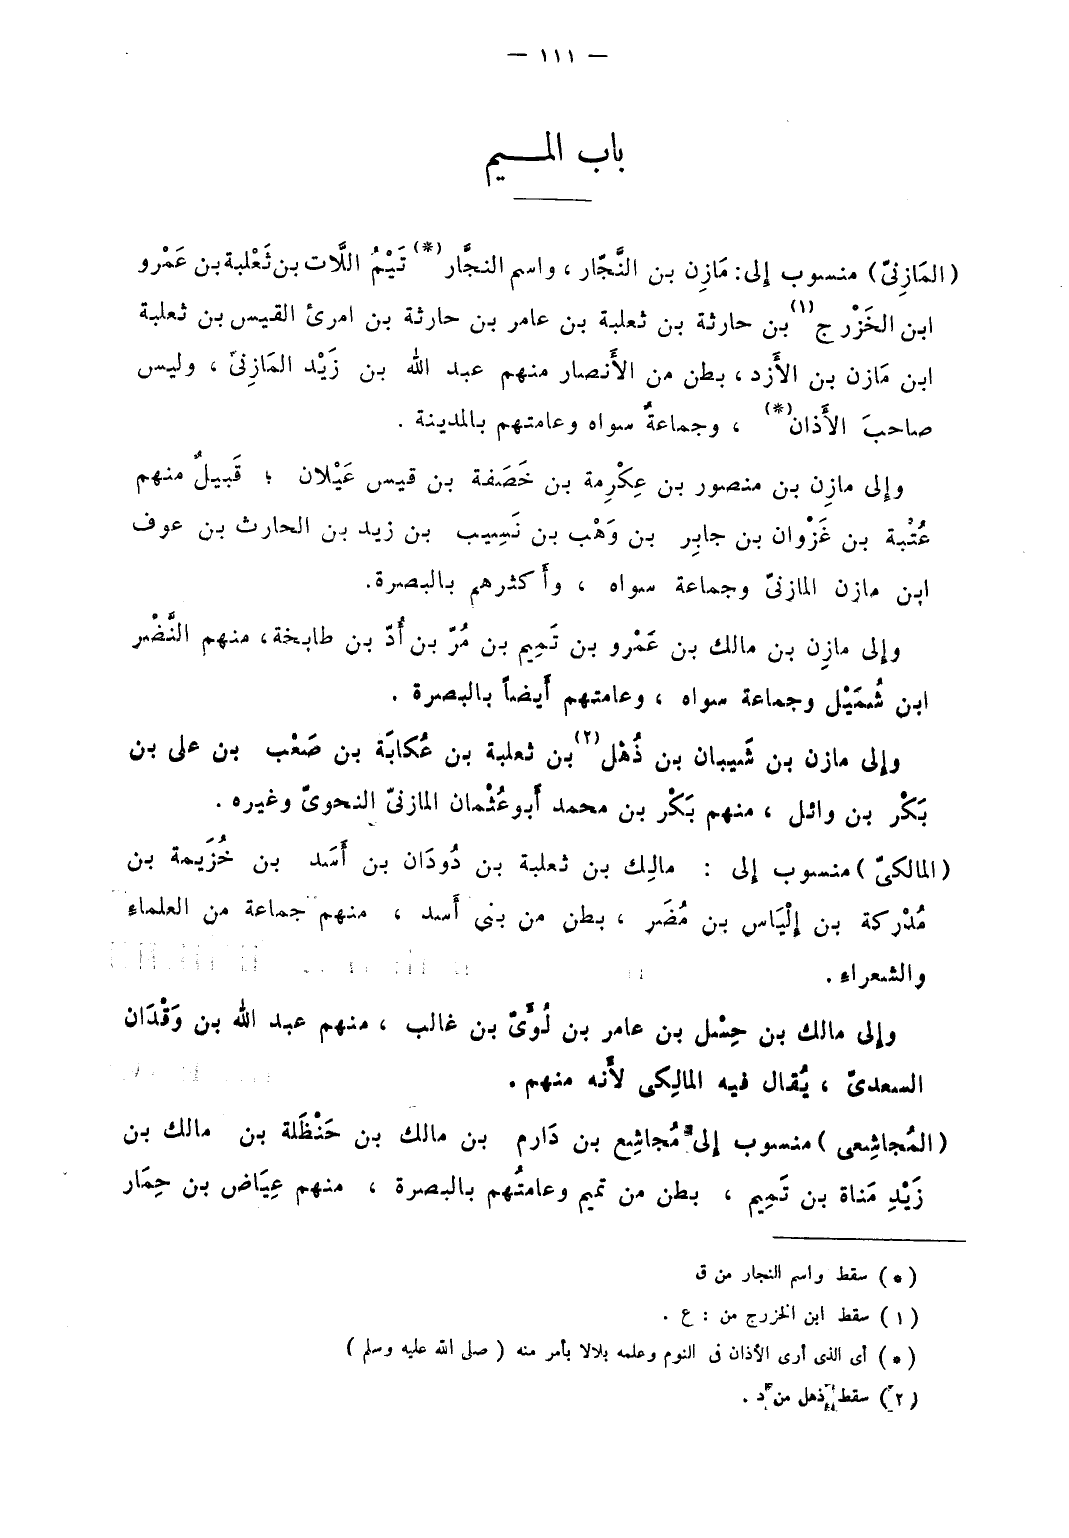 — ١١١ —
باب المـــيم
(المَازِنىّ) منسوب إلى: مَازِن بن النَّجَّار ، واسم النجَّار(*) تَيْمُ اللَّات بن ثَعْلبة بن عَمْرو
ابن الخَزْرج(١) بن حارثة بن ثعلبة بن عامر بن حارثة بن امرئ القيس بن ثعلبة
ابن مَازن بن الأَزد ، بطن من الأَنصار منهم عبد الله بن زَيْد المَازِنىّ ، وليس
صاحبَ الأَذان(*) ، وجماعةٌ سواه وعامتهم بالمدينة .
وإلى مازِن بن منصور بن عِكْرِمة بن خَصَفة بن قيس عَيْلان ؛ قَبيلٌ منهم
عُتْبة بن غَزْوان بن جابِر بن وَهْب بن نَسِيب بن زيد بن الحارث بن عوف
ابن مازن المازنىّ وجماعة سواه ، وأَكثرهم بالبصرة.
وإلى مازِن بن مالك بن عَمْرو بن تَمِيم بن مُرّ بن أُدّ بن طابخة ، منهم النَّضْر
ابن شُمَيْل وجماعة سواه ، وعامتهم أَيضاً بالبصرة .
وإلى مازن بن شَيبان بن ذُهْل(٢) بن ثعلبة بن عُكابَة بن صَعْب بن على بن
بَكْر بن وائل ، منهم بَكْر بن محمد أَبو عُثْمان المازنىّ النحوىّ وغيره .
(المالكىّ) منسوب إلى : مالِك بن ثعلبة بن دُودَان بن أَسَد بن خُزَيمة بن
مُدْركة بن إِلْيَاس بن مُضَر ، بطن من بنى أَسد ، منهم جماعة من العلماء
والشعراء .
وإلى مالك بن حِسْل بن عامر بن لُوَّىّ بن غالب ، منهم عبد الله بن وَقْدَان
السعدىّ ، يُقال فيه المالِكى لأَنه منهم .
(المُجاشِعى) منسوب إلى مُجاشِع بن دَارم بن مالك بن حَنْظَلة بن مالك بن
زَيْدِ مَناة بن تَمِيم ، بطن من تميم وعامتُهم بالبصرة ، منهم عِيَاض بن حِمَار
(*) سقط واسم النجار من ق
(١) سقط ابن الخزرج من : ع .
(*) أى الذى أرى الأذان فى النوم وعلمه بلالا بأمر منه ( صلى الله عليه وسلم )
(٢) سقط ذهل من د .